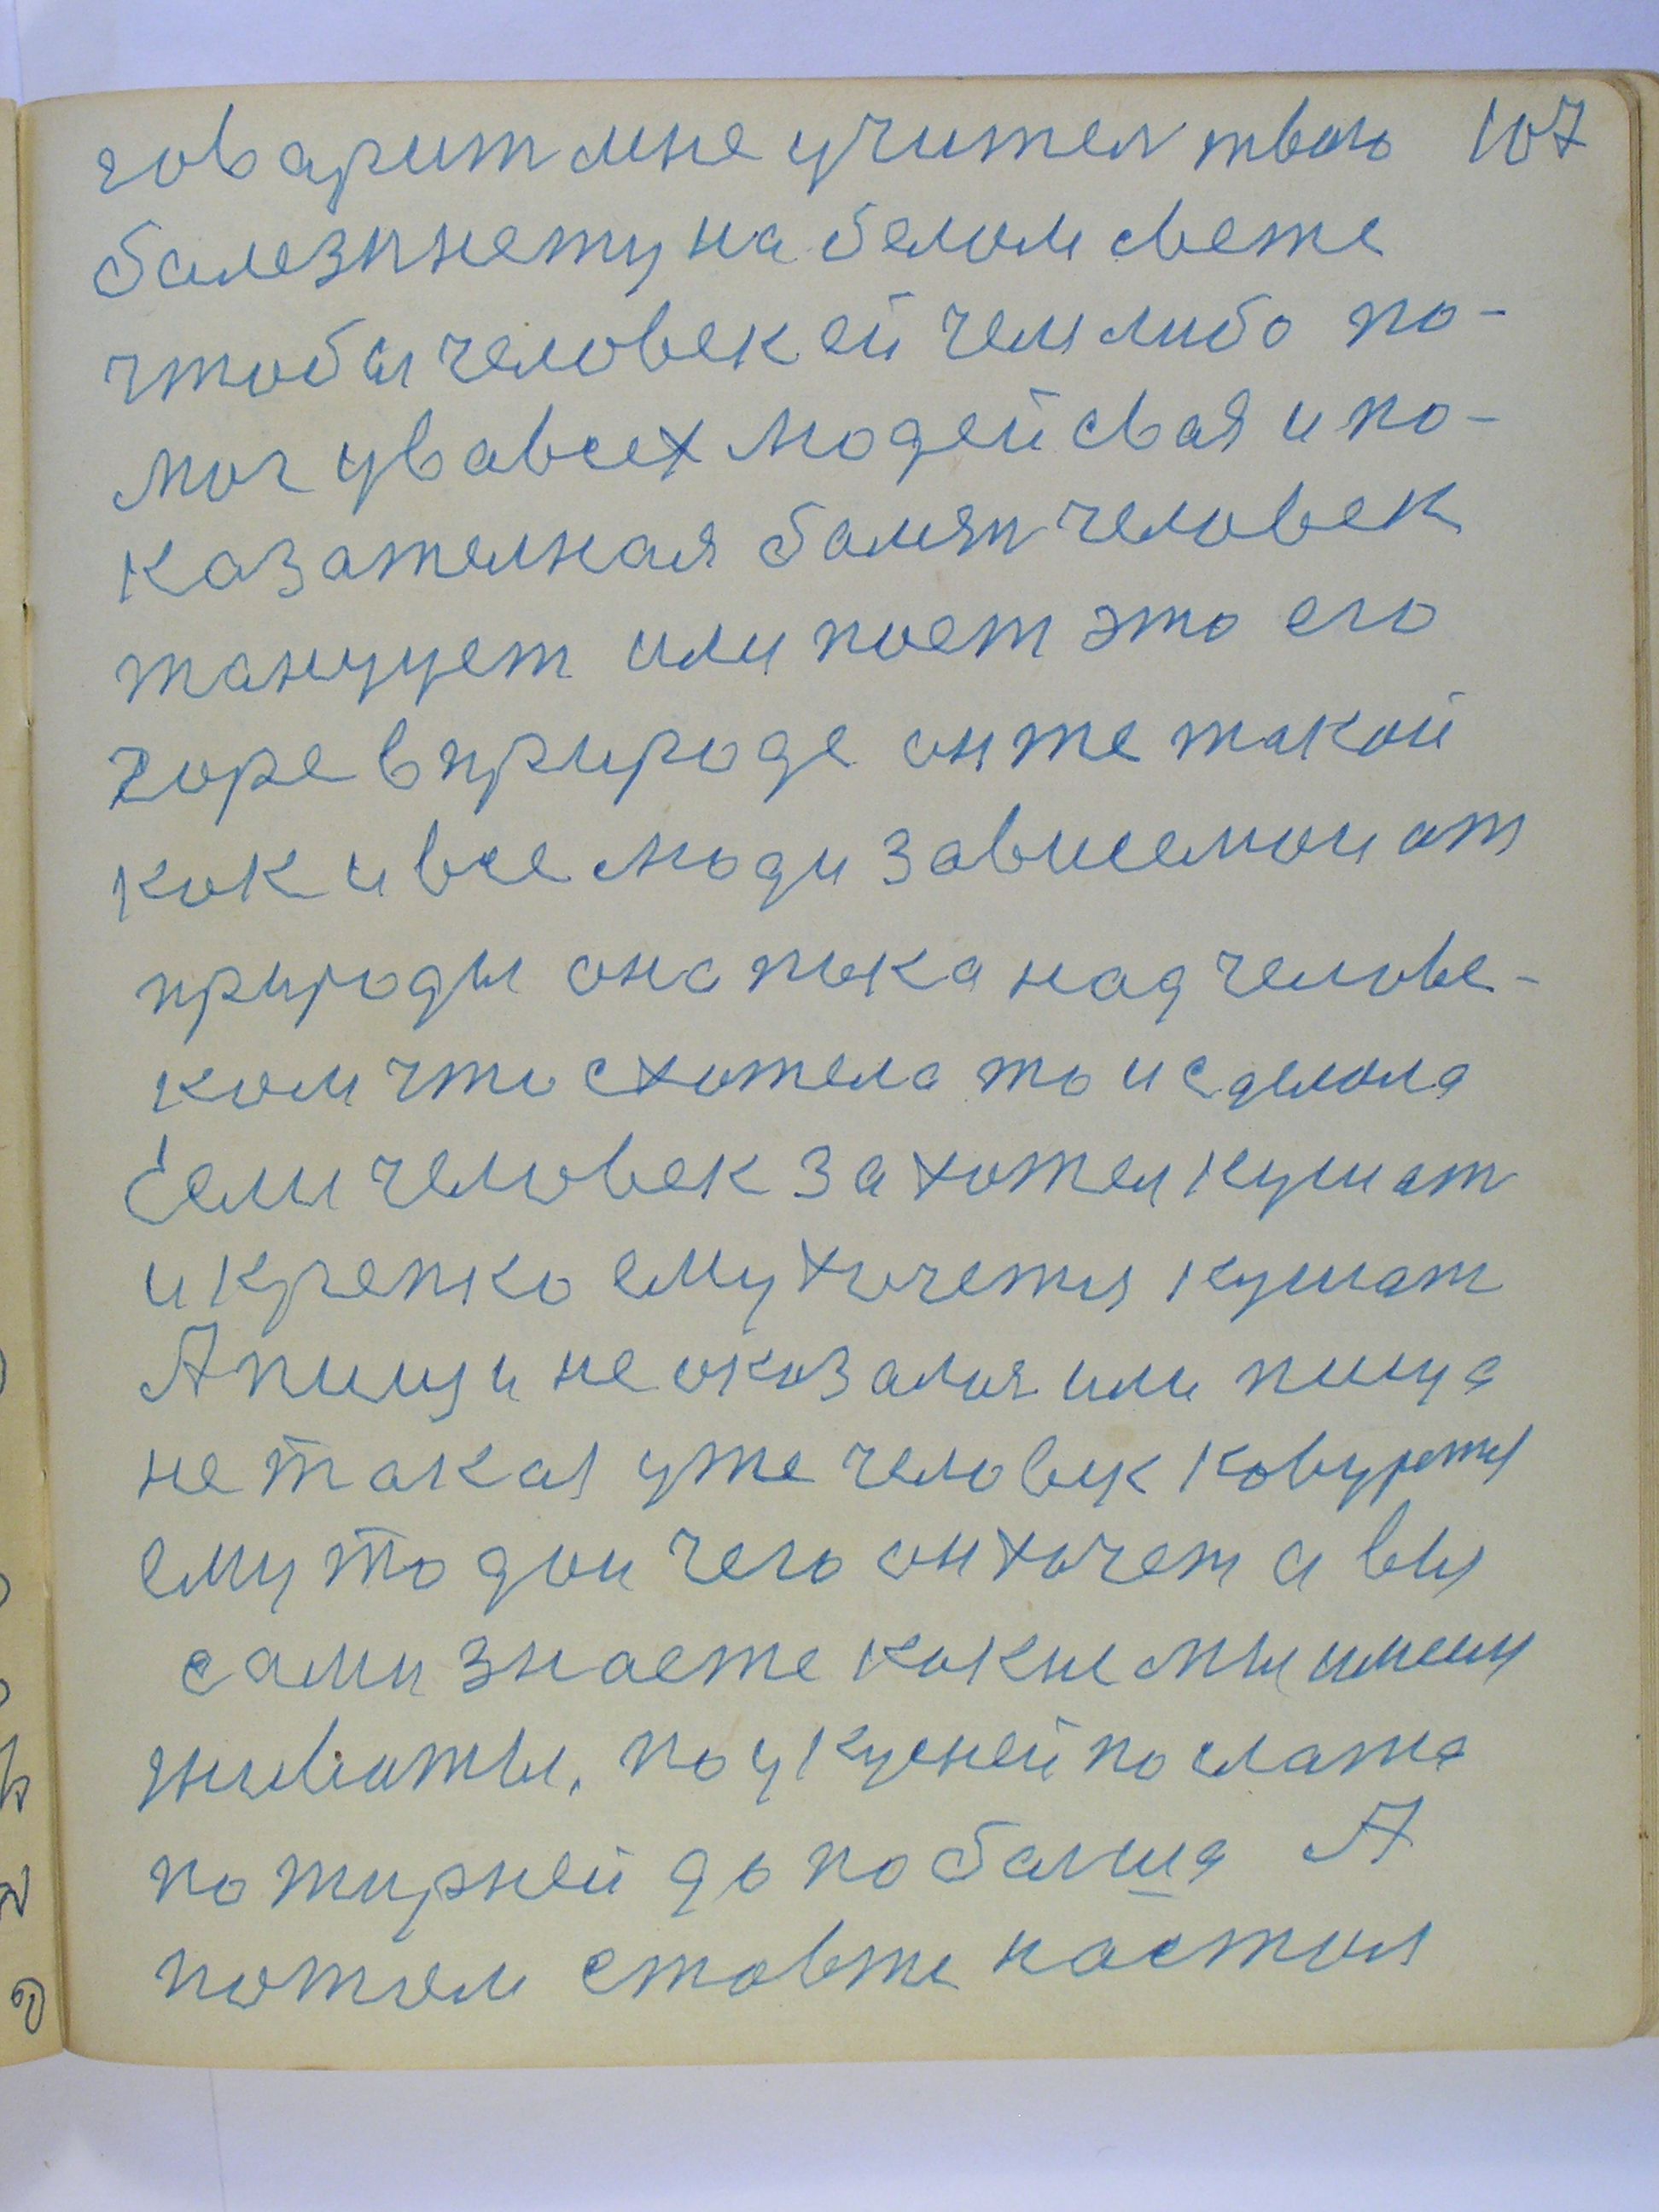 говарит мне учител твою 107
балезн нету на белом свете
чтобы человек ей чем либо по-
мог ув авсех людей свая и по-
казателная балят человек
танцует или поет это его
горе в природе он же такой
как и все люди зависемои от
природы она пока над челове-
ком что схотела то и сделала
Если человек захотел кушат
и крепко ему хочетыя кушат
А пищи не оказалоя или пища
не такая уже человек ковуржыя
ему то дай чего он хочет а вы
сами знаете какие мы имеим
животы, по укусней по слаже
по жирней да по балша А
потом ставте настоя